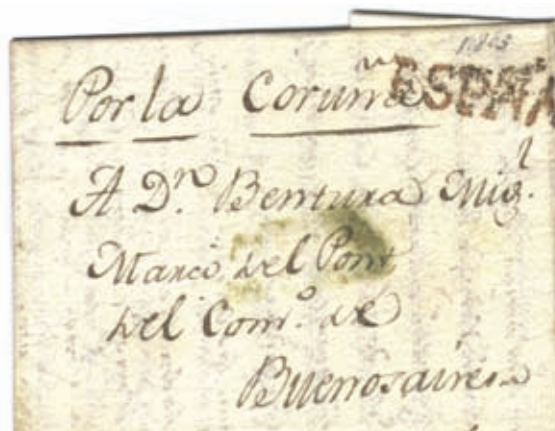 1805
Por la Coruña ESPAÑA
A Dⁿ. Bentura Migˡ.
Marcó del Pont
del Comº. de
Buenosaires